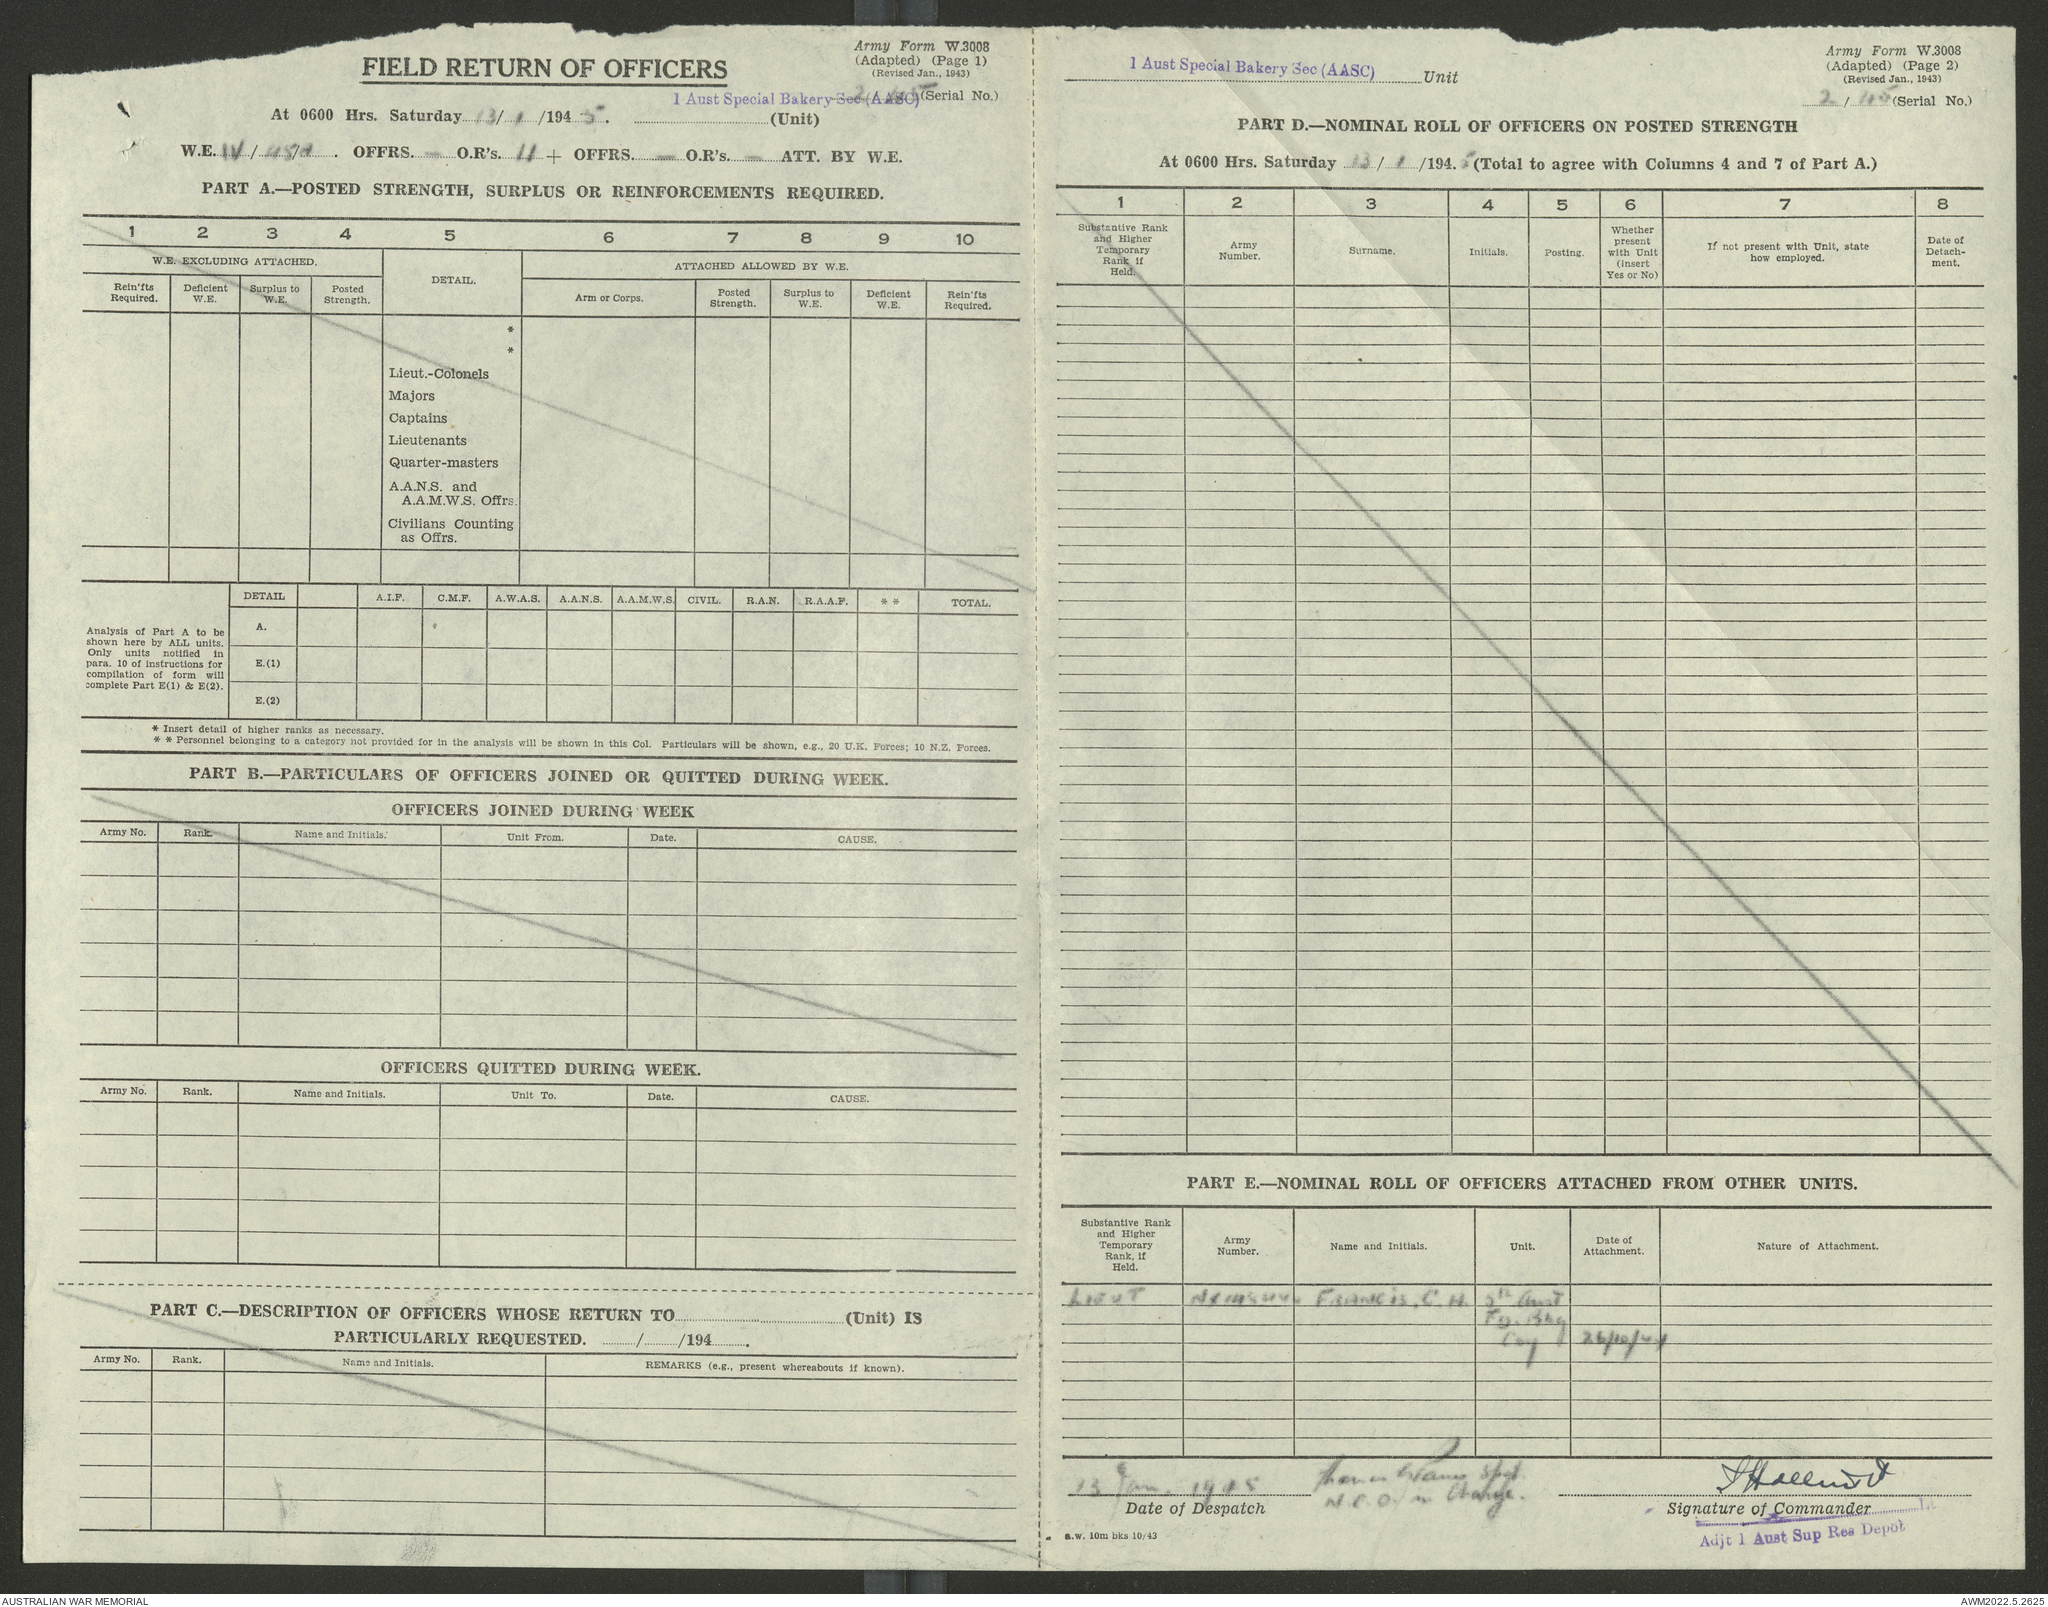 Army Form W.3008
(Adapted) (Page 1)
(Revised Jan., 1943)
FIELD RETURN OF OFFICERS
1 Aust Special Bakery Sec (AASC) 2/45 (Serial No.)
At 0600 Hrs. Saturday 13/1/1945. (Unit)
W.E. OFFRS. — O.R's. 11 + OFFRS. — O.R's. — ATT. BY W.E.
PART A.—POSTED STRENGTH, SURPLUS OR REINFORCEMENTS REQUIRED.
1 2 3 4 5 6 7 8 9 10
W.E. EXCLUDING ATTACHED. DETAIL. ATTACHED ALLOWED BY W.E.
Rein'fts Required. Deficient W.E. Surplus to W.E. Posted Strength. Arm or Corps. Posted Strength. Surplus to W.E. Deficient W.E. Rein'fts Required.
*
*
Lieut.-Colonels
Majors
Captains
Lieutenants
Quarter-masters
A.A.N.S. and
A.A.M.W.S. Offrs.
Civilians Counting
as Offrs.
DETAIL A.I.F. C.M.F. A.W.A.S. A.A.N.S. A.A.M.W.S. CIVIL. R.A.N. R.A.A.F. * * TOTAL.
Analysis of Part A to be
shown here by ALL units.
Only units notified in
para. 10 of instructions for
compilation of form will
complete Part E(1) & E(2).
A.
E.(1)
E.(2)
* Insert detail of higher ranks as necessary.
* * Personnel belonging to a category not provided for in the analysis will be shown in this Col. Particulars will be shown, e.g., 20 U.K. Forces; 10 N.Z. Forces.
PART B.—PARTICULARS OF OFFICERS JOINED OR QUITTED DURING WEEK.
OFFICERS JOINED DURING WEEK
Army No. Rank. Name and Initials. Unit From. Date. CAUSE.
OFFICERS QUITTED DURING WEEK.
Army No. Rank. Name and Initials. Unit To. Date. CAUSE.
PART C.—DESCRIPTION OF OFFICERS WHOSE RETURN TO (Unit) IS
PARTICULARLY REQUESTED. / /194 .
Army No. Rank. Name and Initials. REMARKS (e.g., present whereabouts if known).
Army Form W.3008
(Adapted) (Page 2)
(Revised Jan., 1943)
1 Aust Special Bakery Sec (AASC) Unit
2/45 (Serial No.)
PART D.—NOMINAL ROLL OF OFFICERS ON POSTED STRENGTH
At 0600 Hrs. Saturday 13/1/1945 (Total to agree with Columns 4 and 7 of Part A.)
1 2 3 4 5 6 7 8
Substantive Rank and Higher Temporary Rank if Held. Army Number. Surname. Initials. Posting. Whether present with Unit (insert Yes or No) If not present with Unit, state how employed. Date of Detach-ment.
PART E.—NOMINAL ROLL OF OFFICERS ATTACHED FROM OTHER UNITS.
Substantive Rank and Higher Temporary Rank, if Held. Army Number. Name and Initials. Unit. Date of Attachment. Nature of Attachment.
LIEUT FRANCIS, C. H. Aust
Fd. Bky
Coy 26/10/44
13 Jan. 1945 Sgt
N.C.O. in Charge.
Date of Despatch Signature of Commander Lt
Adjt 1 Aust Sup Res Depot
a.w. 10m bks 10/43
AUSTRALIAN WAR MEMORIAL AWM2022.5.2625